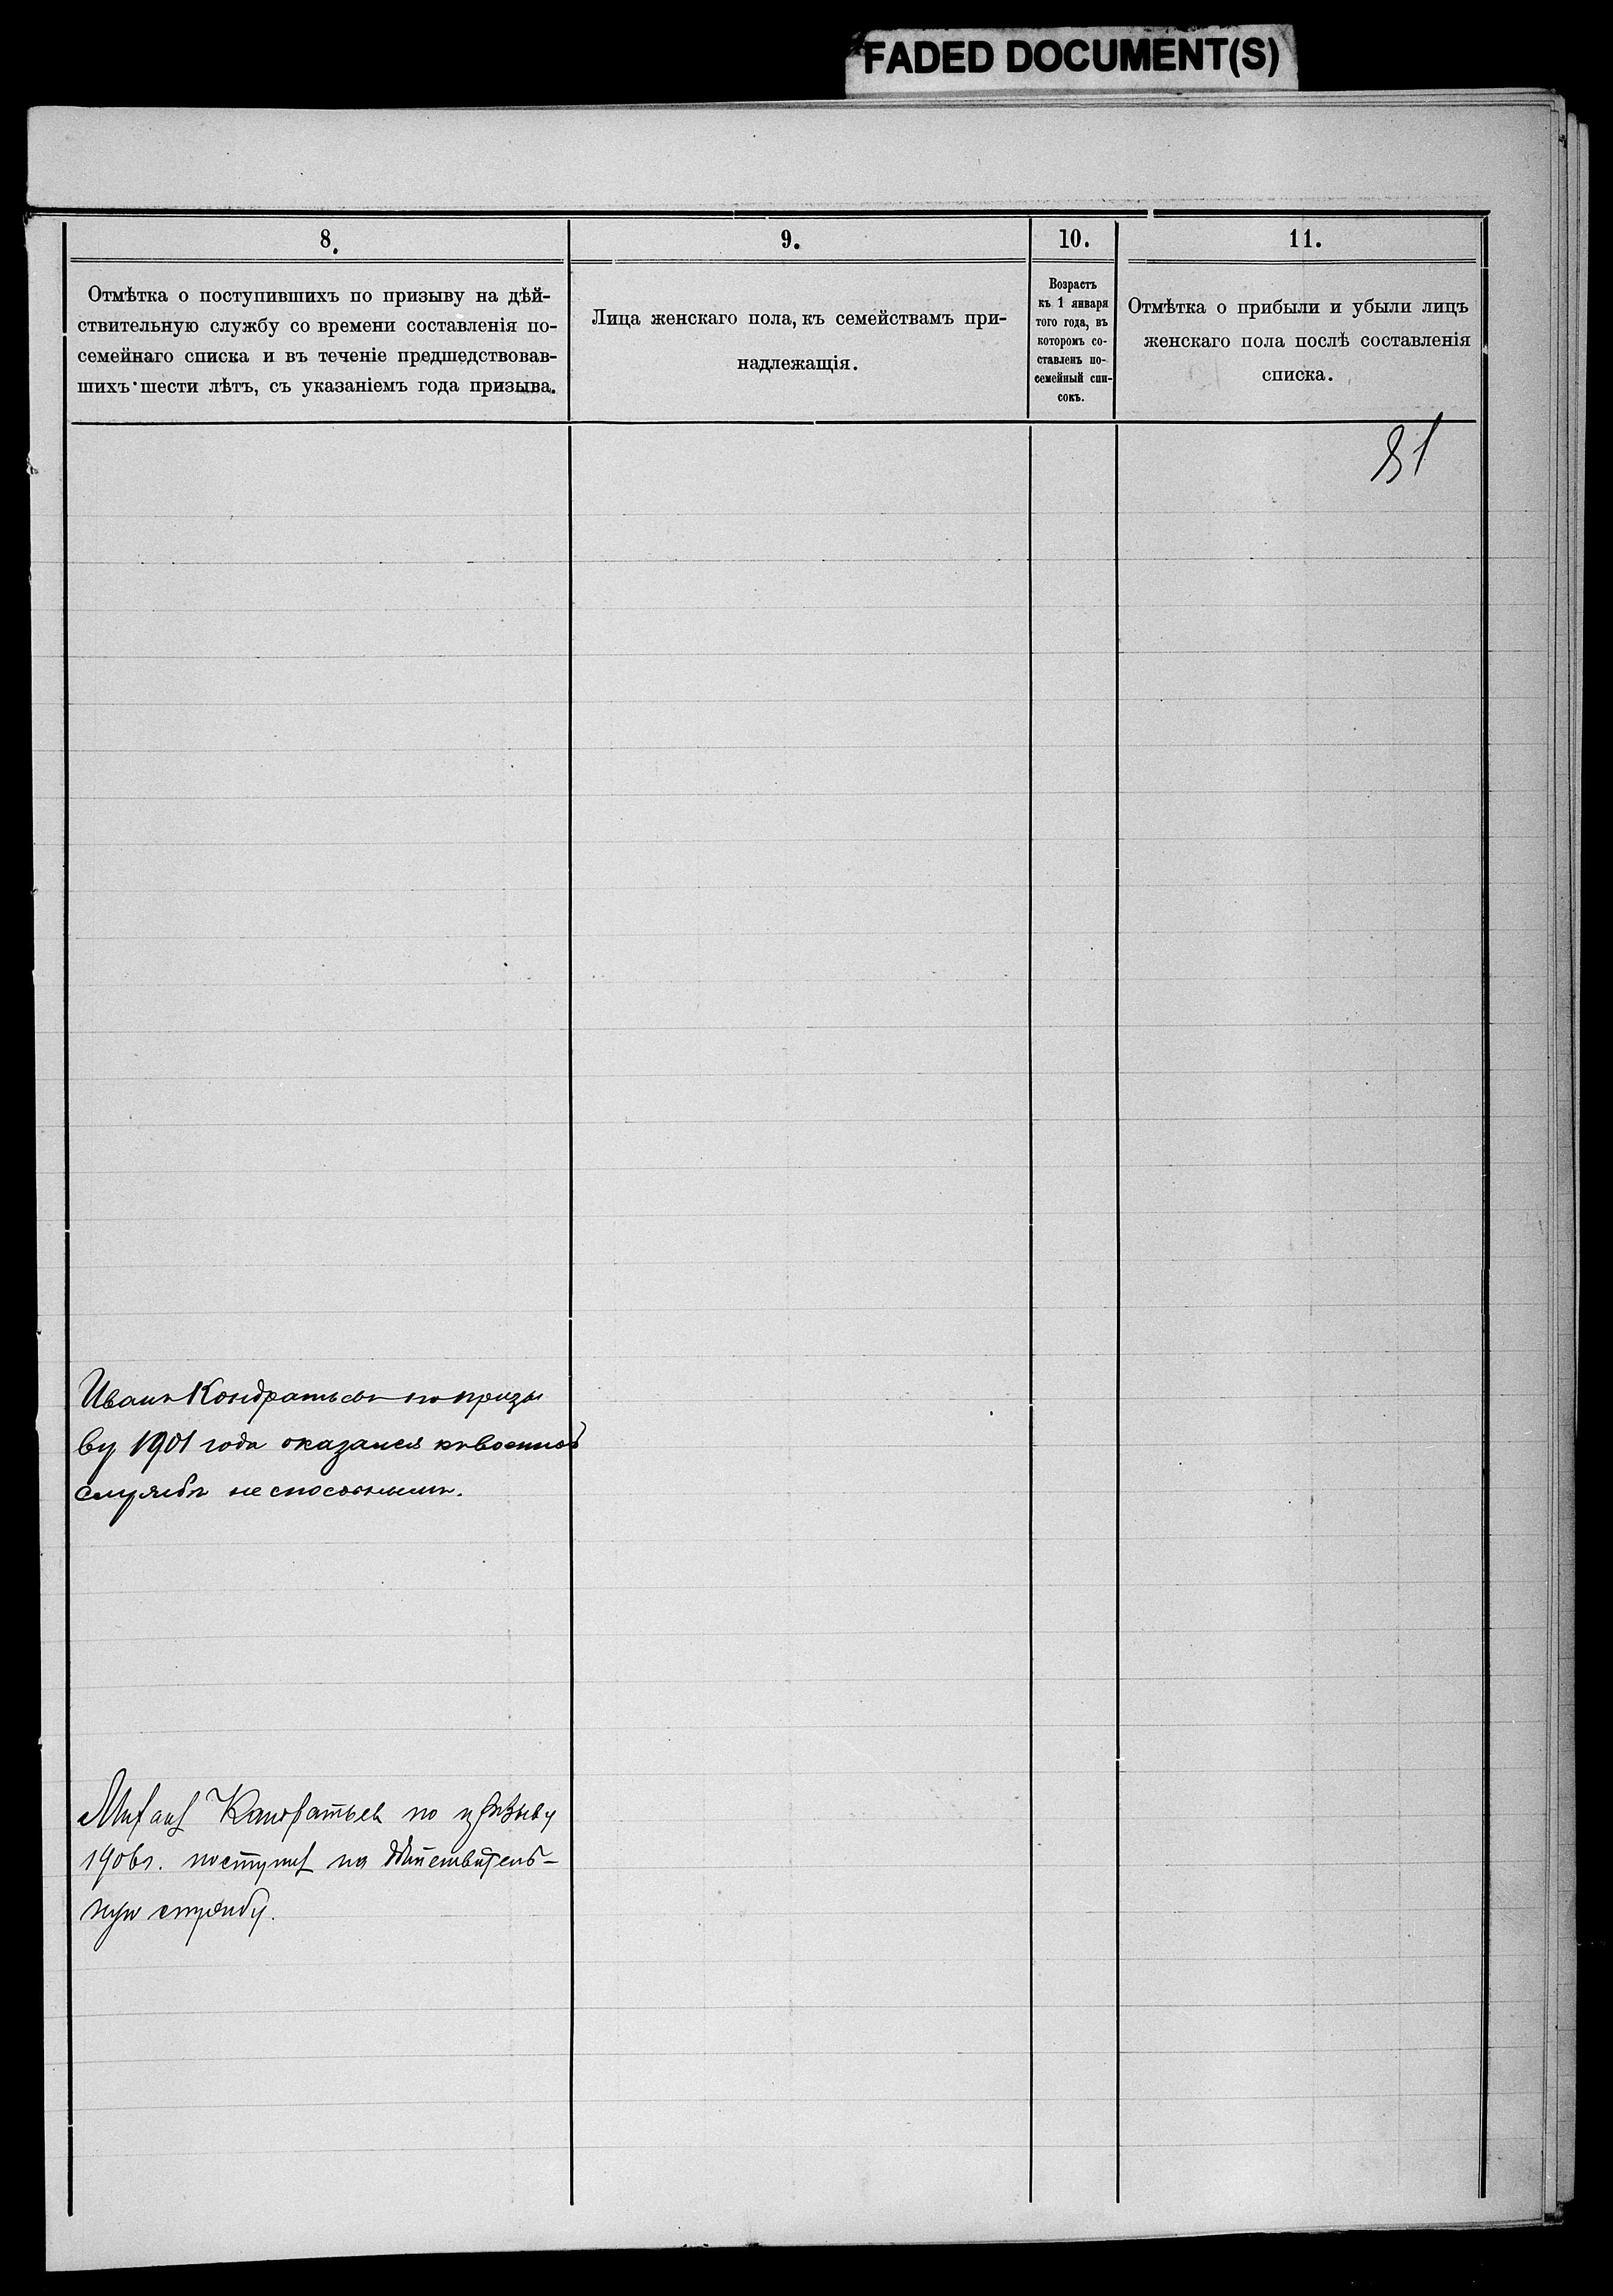 FADED DOCUMENT(S)
8.
Отмѣтка о поступившихъ по призыву на дѣй-
ствительную службу со времени составленія по-
семейнаго списка и въ теченіе предшедствовав-
шихъ шести лѣтъ, съ указаніемъ года призыва.
9.
Лица женскаго пола, къ семействамъ при-
надлежащія.
10.
Возрастъ
къ 1 января
того года, въ
которомъ со-
ставленъ по-
семейный спи-
сокъ.
11.
Отмѣтка о прибыли и убыли лицъ
женскаго пола послѣ составленія
списка.
81
Иванъ Кондратьевъ по призы
ву 1901 года оказался къ военной
службѣ неспособнымъ.
Михаилъ Кандратьев по призыву
1906г. поступилъ на дѣйствитель-
ную службу.